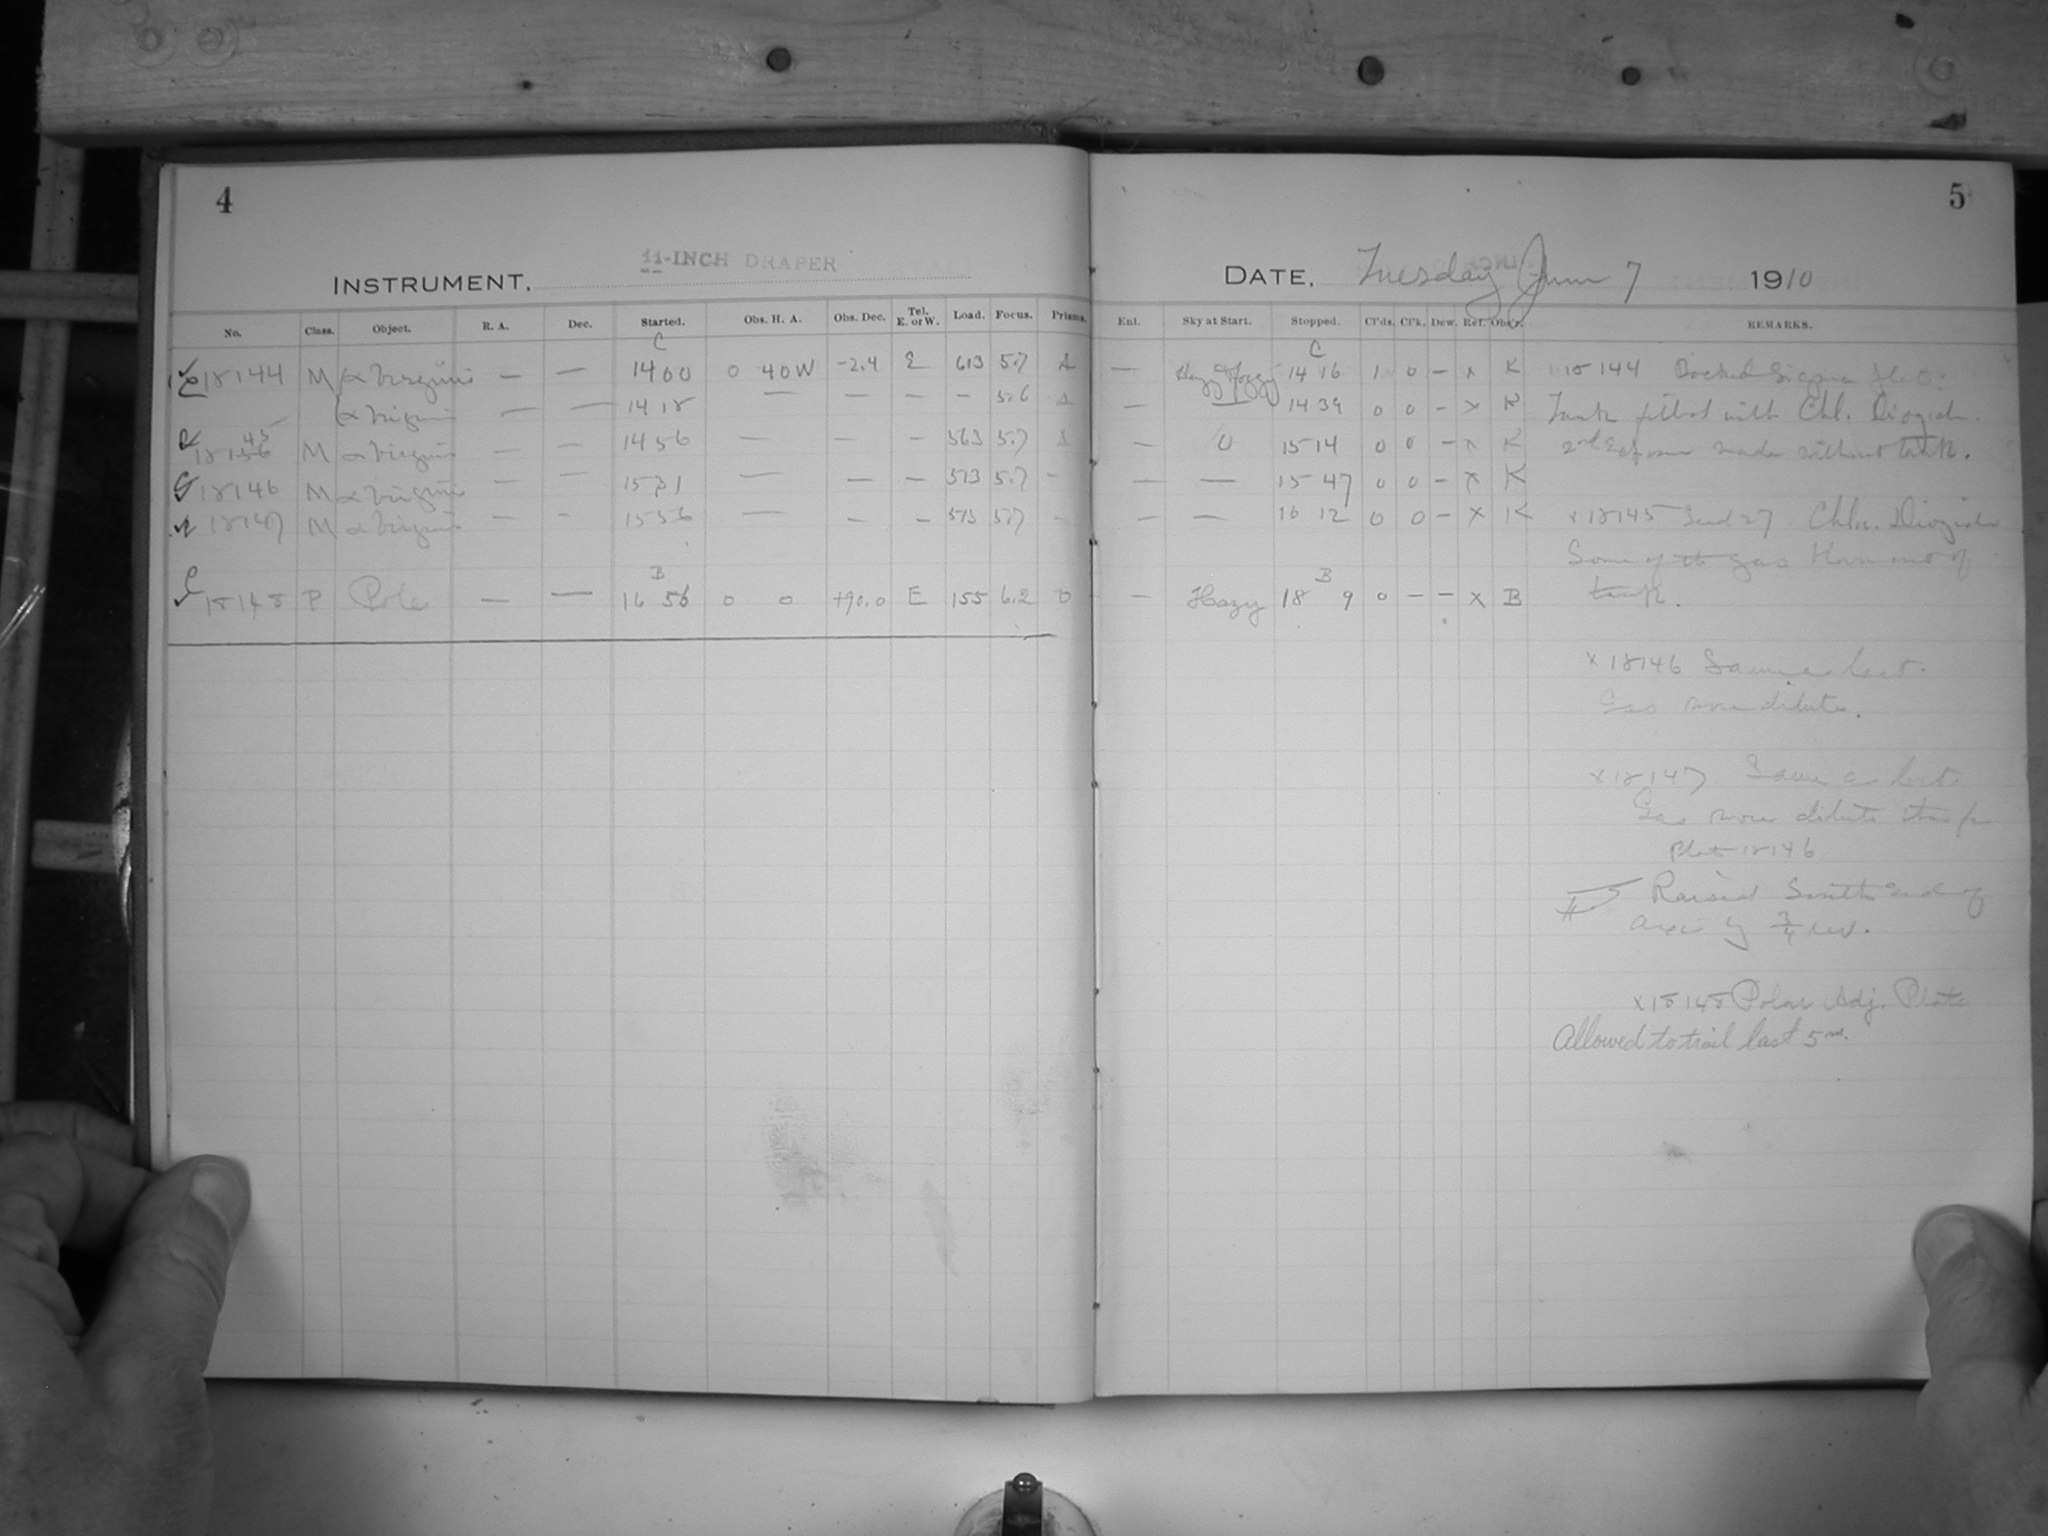 4
INSTRUMENT, 11-INCH DRAPER
No. Class. Object. R. A. Dec. Started. Obs. H. A. Obs. Dec. Tel. E. or W. Load. Focus. Prisms.
C
18144 M α Virginis — — 14 00 0 40 W -2.4 E 613 5.7
α Virginis — — 14 18 — — — — 5.6
45
18156 M α Virginis — — 14 56 — — — 563 5.7
18146 M α Virginis — — 15 31 — — — 513 5.7 —
18147 M α Virginis — — 15 56 — — — 513 5.7 —
B
18148 P Pole — — 16 56 0 0 +90.0 E 155 6.2 0
5
DATE, Tuesday June 7 1910
Enl. Sky at Start. Stopped. Cl'ds. Cl'k. Dew. Ref. Obs'r. REMARKS.
C
— Hazy Foggy 14 16 1 0 — x K 18144 Backed
— — 14 39 0 0 — x K Tank filled with Chl. Dioxide.
— 0 15 14 0 0 — x K 2nd Exposure made without tank.
— — 15 47 0 0 — x K
— — 16 12 0 0 — x K x 18145 Seed 27 Chlor. Dioxide
Some of the gas
B
— Hazy 18 9 0 — — x B tank.
x 18146 Same as last.
Gas more dilute.
x 18147 Same as last
Gas more dilute than for
Plate 18146
Raised South end of
axis by 3/4 rev.
x 18148 Polar Adj. Plate
Allowed to trail last 5m.